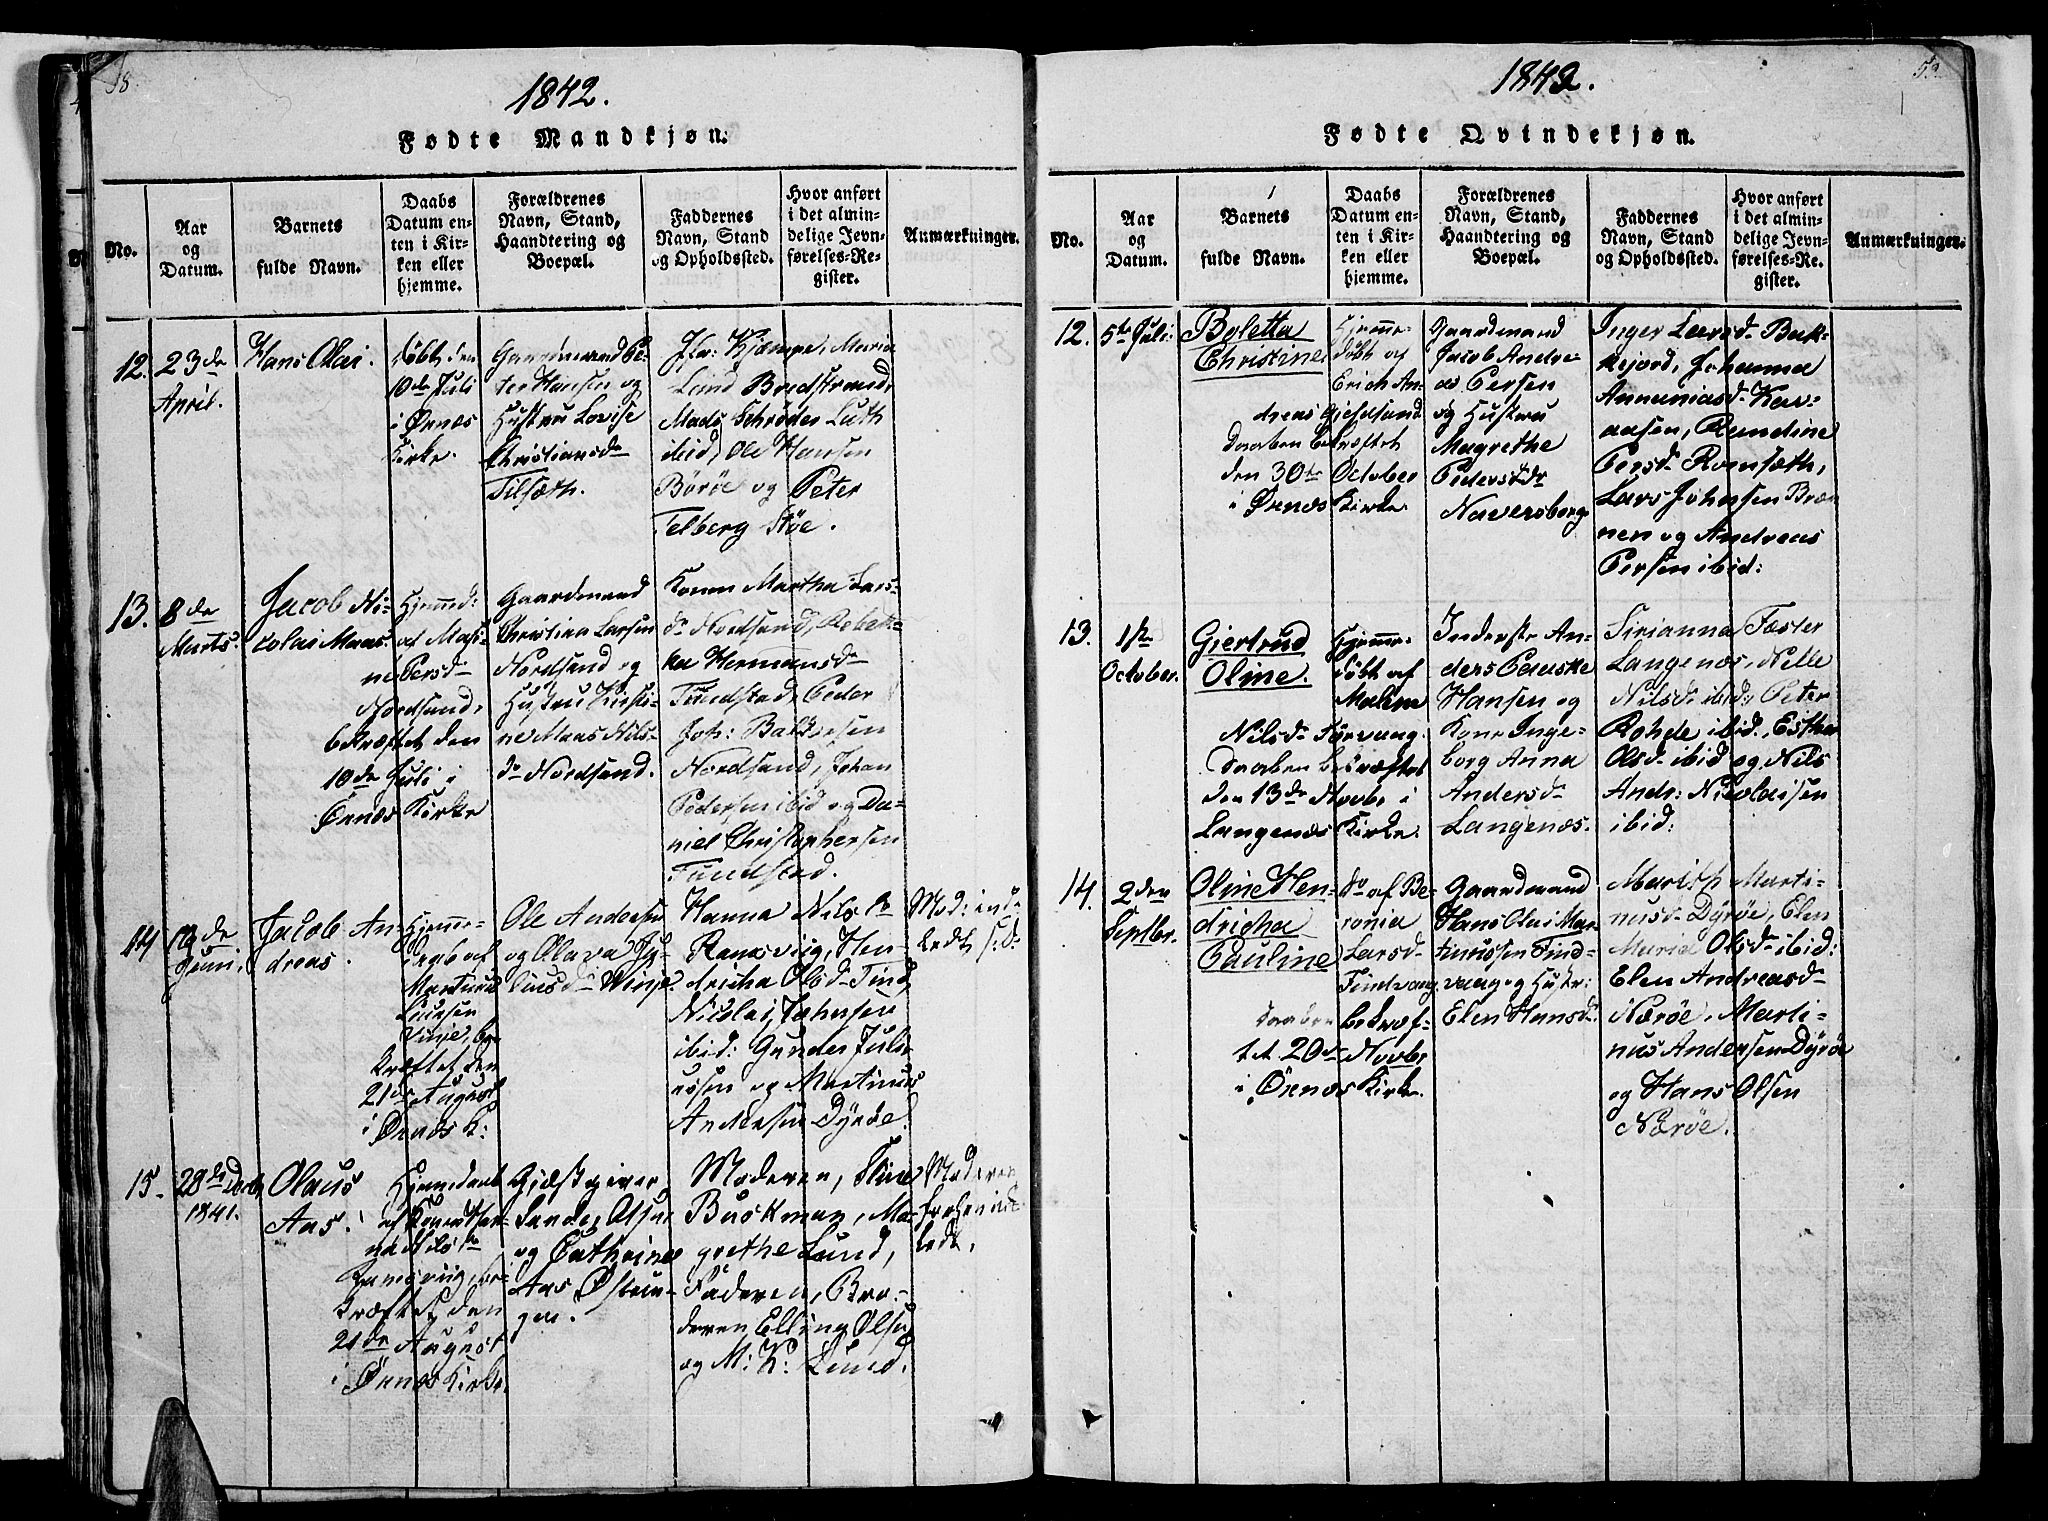 58.
1842.
Fødte Mandkjøn.
No.
Aar
og
Datum.
Barnets
fulde Navn.
Daabs
Datum en-
ten i Kir-
ken eller
hjemme.
Forældrenes
Navn, Stand,
Haandtering og
Boepæl.
Faddernes
Navn, Stand
og Opholdssted.
Hvor anført
i det almin-
delige Jevn-
førelses-Re-
gister.
Anmærkninger.
12.
23de
April.
Hans Olai.
døbt den
10de Juli
i Ørnæs
Kirke.
Gaardmand Pe-
ter Hansen og
Hustru Lovise
Christiansdr
Tilsæth.
Jfr: Kjempe, Maria
Lund Bredstrand,
Mads Schrøder Luth
ibid, Ole Hansen
Børøe og Peter
Telberg Støe.
13.
8de
Marts.
Jacob Ni-
colai Maas.
Hjemmed:
af Masi-
ne Persdr
Nordsund,
bekræftet den
10de Juli i
Ørnæs Kirke
Gaardmand
Christian Larsen
Nordsund og
Hustru Kirsti-
ne Maas Nils-
dr Nordsund.
Konen Martha Lars-
dr Nordsund, Rebek-
ka Hermansdr
Tundstad, Peder
Joh: Baltersen
Nordsund, Johan
Pedersen ibid og Da-
niel Christophersen
Tundstad.
14
Juni.
Jacob An-
dreas.
Hjemme-
af
Martinus
Vinje, be-
kræftet den
21de August
i Ørnæs K:
Ole Andersen
og Olava Ju-
liusdr Winje
Hanna Nilsdr
Ramsviig, Hen-
dricha Olsd Tind,
Nicolai Johnsen
ibid: Gunder Juli-
ussen og Martinus
Andersen Dyrøe.
Mod: ind-
ledt s: d:
15.
28de Decbr
1841.
Olaus
Aas.
Hjemdøbt
af
na Nilsdr
Ramsviig, be-
kræftet den
21de August
i Ørnæs Kirke.
Gjæstgiver
Sander Olsen
og Cathrine
Aas
Moderen, Stine
Buckman, Ma-
grethe Lund,
Faderen, Bro-
deren Elling Olsen
og M: K: Lund.
Moderen
forhen ind-
ledt.
59.
1842.
Fødte Qvindekjøn.
No.
Aar
og
Datum.
Barnets
fulde Navn.
Daabs
Datum en-
ten i Kir-
ken eller
hjemme.
Forældrenes
Navn, Stand,
Haandtering og
Boepæl.
Faddernes
Navn, Stand
og Opholdssted.
Hvor anført
i det almin-
delige Jevn-
førelses-Re-
gister.
Anmærkninger.
12.
5te Juli:
Boletta
Christine
Hjemme-
døbt af
Erich An-
dreas Gjeldsund
Daaben bekræftet
den 30te October
i Ørnæs Kirke.
Gaardmand
Jacob Andre-
as Persen
og Hustru
Magrethe
Pedersdr
Naversborg
Inger Larsdr Bak-
kejord, Johanna
Ananiasdr Kav-
aasen, Rundine
Persdr Romsæth,
Lars Johnsen Bræn-
nen og Andreas
Persen ibid:
13.
1ste
October.
Giertrud
Oline.
Hjemme-
døbt af
Malene
Nilsdr Førvang.
Daaben bekræftet
den 13de Novbr i
Langenæs Kirke.
Inderste An-
ders Pauske
Hansen og
Kone Inge-
borg Anna
Andersdr
Langenæs.
Sirianna Fæster
Langenæs, Nille
Nilsdr ibid: Peter
Rohde ibid, Esther
Olsdr ibid og Nils
Andr: Nicolaisen
ibid:
14.
2den
Septbr.
Oline Hen-
dricha
Pauline
Do af Be-
ronia
Larsdr
Tindvaag,
Daaben bekræf-
tet 20de Novbr
i Ørnæs Kirke.
Gaardmand
Hans Olai Mar-
tinussen Tind-
vaag og Hustr:
Elen Hansdr
Marith Marti-
nusdr Dyrøe, Elen
Maria Olsdr ibid:
Elen Andreasdr
Nærøe, Marti-
nus Andersen Dyrøe
og Hans Olsen
Nærøe.